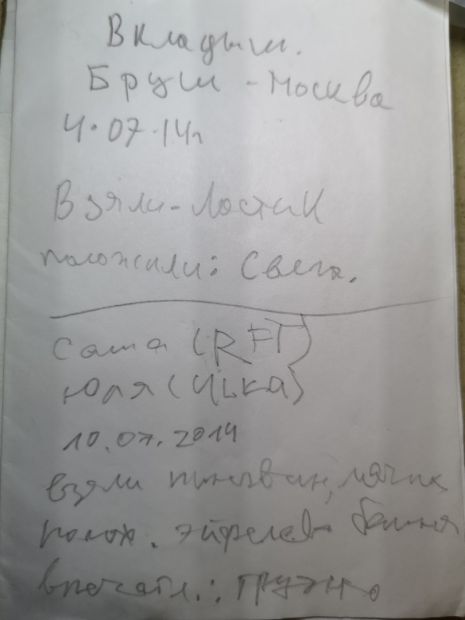 Вкладыш.
Бруш - Москва
4.07.14г
Взяли - Ластик
положили: Свеча.
Саша (RFT)
Юля (Илька)
10.07.2014
взяли пингвин, мячик
полож. эйфелева башня
впечатл.: грузно